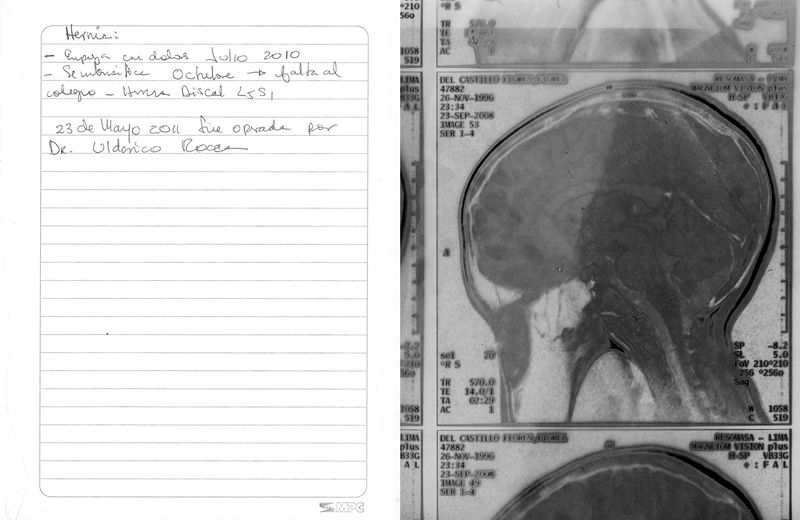 Hernia:
- Empieza con dolor Julio 2010
- Octubre → falta al
colegio - Hernia Discal L5S1
23 de Mayo 2011 fue operada por
Dr. Ulderico Rocca
MPC
°R S
TR 570.0
TE
TA 02:29
AC 1
1058
519
DEL CASTILLO FLORES,FLORES
47882
26-NOV-1996
23:34
23-SEP-2008
IMAGE 53
SER 1-4
RESOMASA - LIMA
MAGNETOM VISION plus
H-SP VB33G
+ : F A L
A
sei 20
°R S
TR 570.0
TE 14.0/1
TA 02:29
AC 1
SP -8.2
SL 5.0
FoV 210*210
256 *256o
Sag
W 1058
C 519
DEL CASTILLO FLORES,FLORES
47882
26-NOV-1996
23:34
23-SEP-2008
IMAGE 49
SER 1-4
RESOMASA - LIMA
MAGNETOM VISION plus
H-SP VB33G
+ : F A L